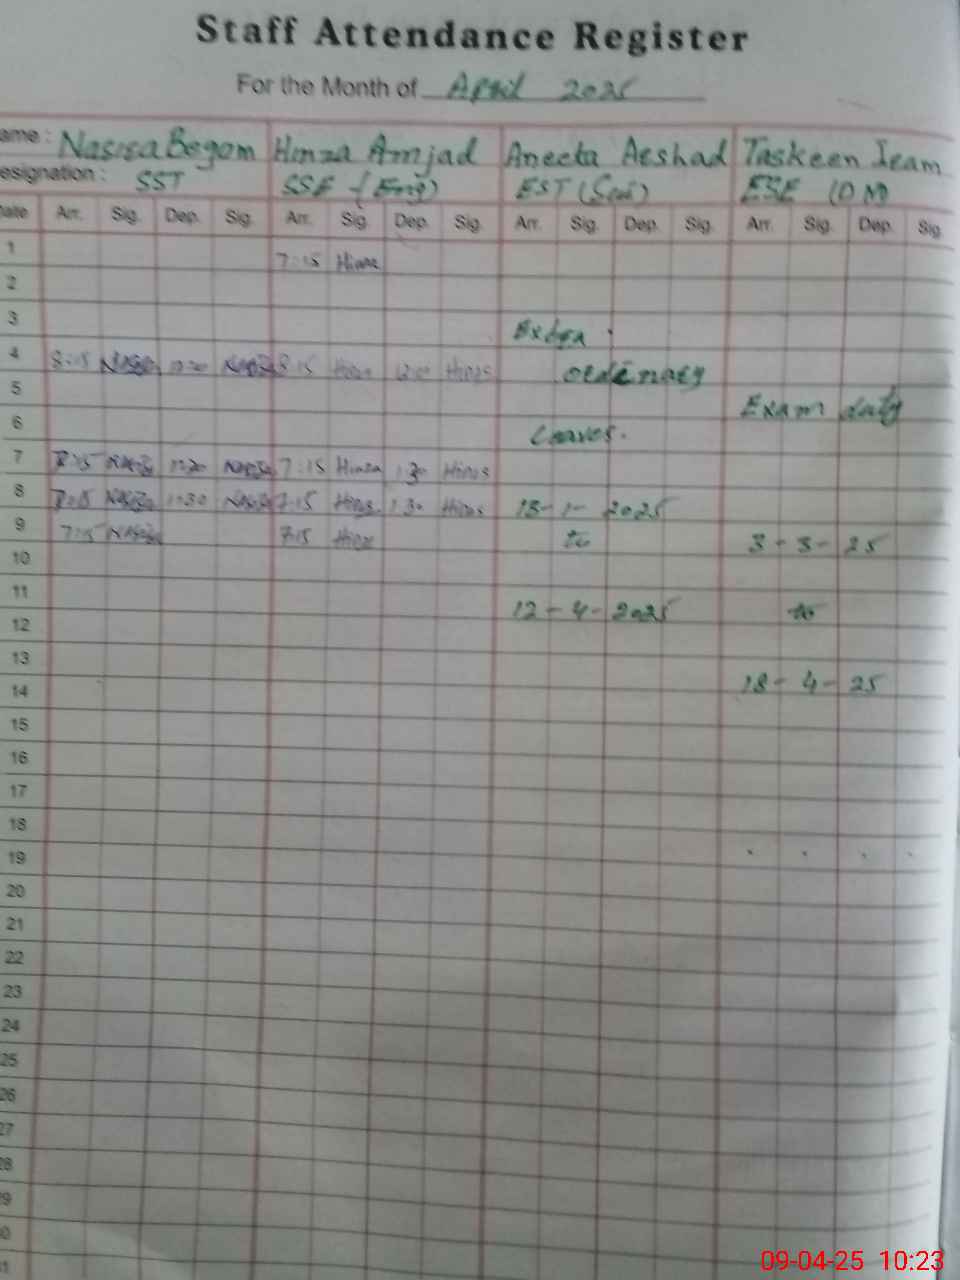 Staff Attendance Register
For the Month of April 2025
ame : Nasisa Begom Hinza Amjad Aneeta Aeshad Taskeen Ieam
esignation : SST SSE (Eng) EST (Sci) ESE
ate Arr. Sig. Dep. Sig. Arr. Sig. Dep. Sig. Arr. Sig. Dep. Sig. Arr. Sig. Dep. Sig
1 7:15
2
3 Extra
4 8:15 8:15 ordinary
5 Exam duty
6 Leaves.
7 7:15 7:15 Hinza 1:30
8 7:15 1:30 7:15 1:30 13-1-2025
9 7:15 7:15 to 3-3-25
10
11 12-4-2025 to
12
13 18-4-25
14
15
16
17
18
19
20
21
22
23
24
25
26
27
28
29
30
31
09-04-25 10:23